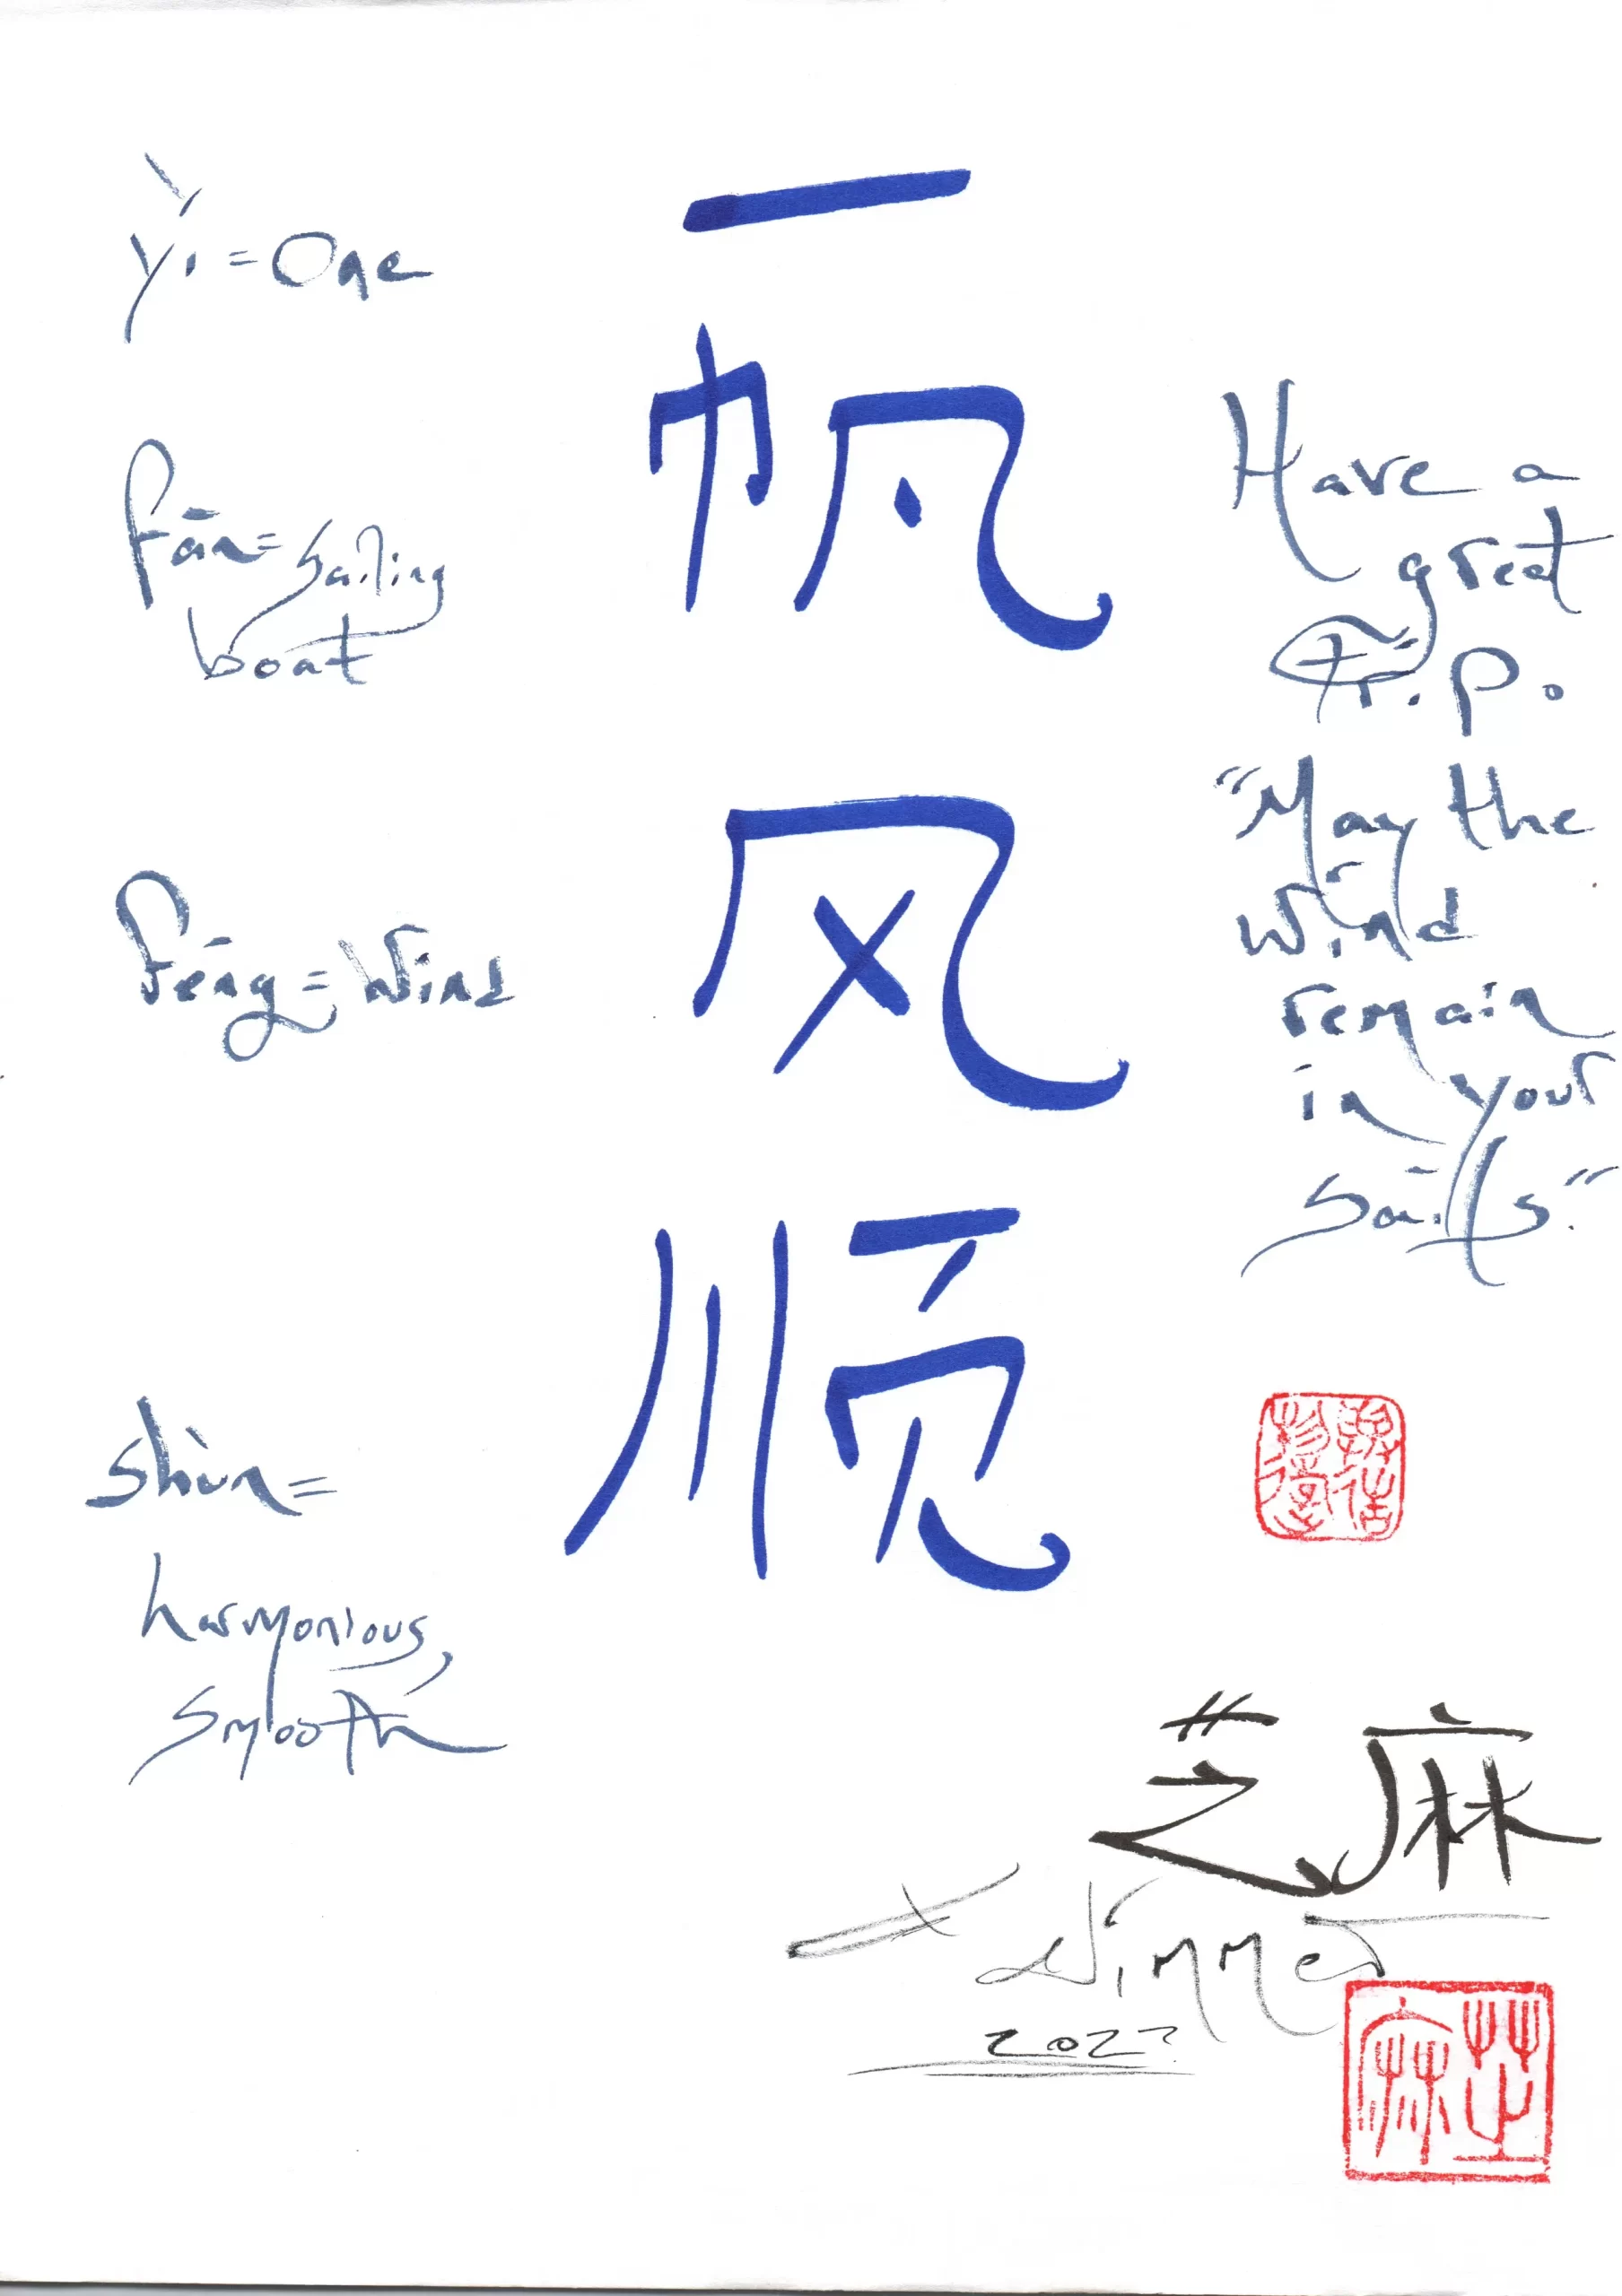 yī = One
一
fān = sailing
boat
帆
fēng = Wind
风
shùn =
harmonious,
smooth
顺
Have a
great
trip.
"May the
Wind
remain
in your
sails."
芝麻
2022
芝麻